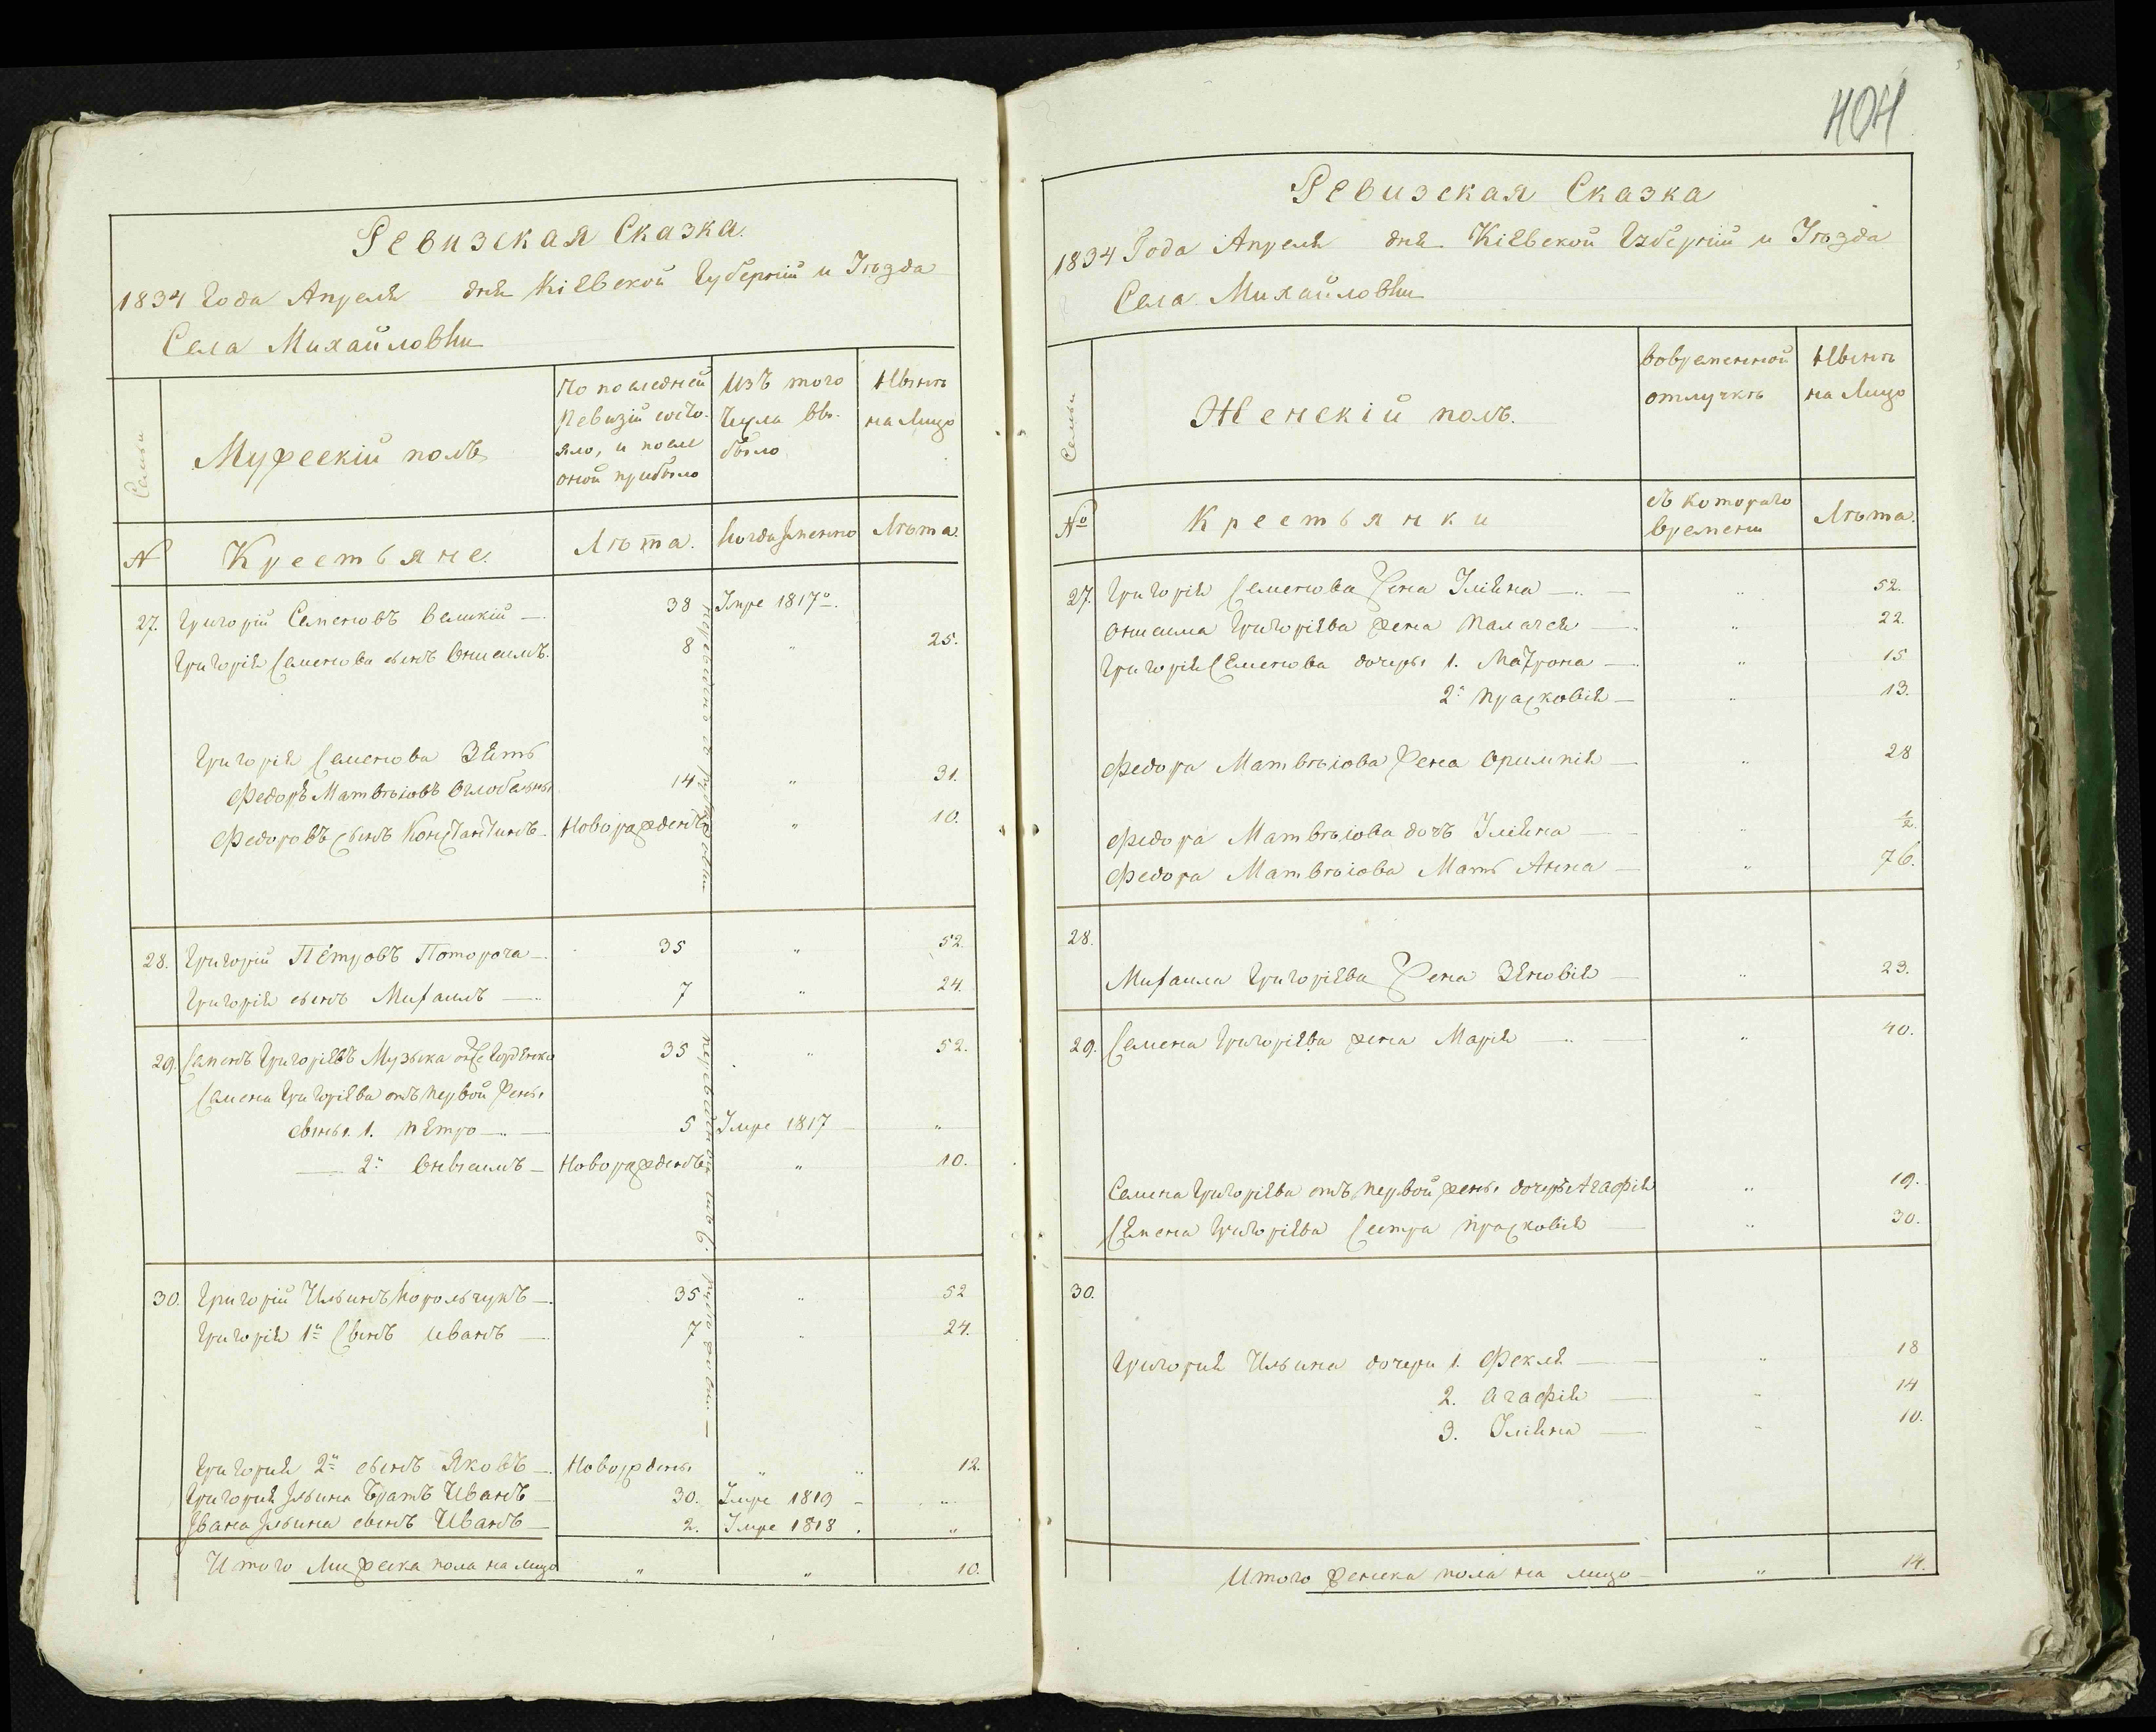 Ревизская Сказка.
1834 Года Апреля дня Кіевской Губерніи и Уѣзда
Села Михайловки
Семьи
Мужескій полъ
По последней Ревизіи состояло, и после оной прибыло
Изъ того Числа выбыло
Нынѣ на Лицо
№
Крестьяне.
Лѣта.
Когда Именно
Лѣта.
27. Григорій Семеновъ Великій 38 Умре 1817го.
Григорія Семенова сынъ Онисимъ. 8 " 25.
Григорія Семенова Зять
Федоръ Матвѣіовъ 14 " 31.
Федоровъ сынъ Константинъ Новорожденъ " 10.
28. Григорій Петровъ Потороча 35 " 52.
Григорія сынъ Михаилъ 7 " 24.
29. Семенъ Григоріевъ Музыка онже 35 " 52.
Семена Григоріева отъ первой Жены
сыны 1. Петро 5 Умре 1817 "
2й Онисимъ Новорожденъ " 10.
30. Григорій Ильинъ Корольчукъ 35 " 52
Григорія 1й Сынъ Иванъ 7 " 24.
Григорія 2й сынъ Яковъ Новорждены " " 12.
Григорія Ильина Братъ Иванъ 30. Умре 1819 "
Ивана Ильина сынъ Иванъ 2. Умре 1818. "
Итого Мужеска пола на лицо " " 10.
404
Ревизская Сказка
1834 Года Апреля дня Кіевской Губерніи и Уѣзда
Села Михайловки
Семьи
Женскій полъ.
Вовременной отлучкѣ
Нынѣ на Лицо
№
Крестьянки
съ котораго Времени
Лѣта.
27. Григорія Семенова Жена Уліяна " 52.
Онисима Григоріева жена Палагея " 22.
Григорія Семенова дочеры 1. Матрона " 15
2я Прасковія " 13.
Федора Матвѣіова Жена Оримпія " 28
Федора Матвѣіова дочъ Уліяна " ½
Федора Матвѣіова Мать Анна " 76.
28.
Михаила Григоріева Жена Зѣновія " 23.
29. Семена Григоріева жена Марія " 40.
Семена Григоріева отъ первой жены дочеръ Агафія " 19.
Семена Григоріева Сестра Прасковія " 30.
30.
Григорія Ильина дочери 1. Фекля " 18
2. Агафія " 14
3. Уліяна " 10.
Итого женска пола на лицо " 14.